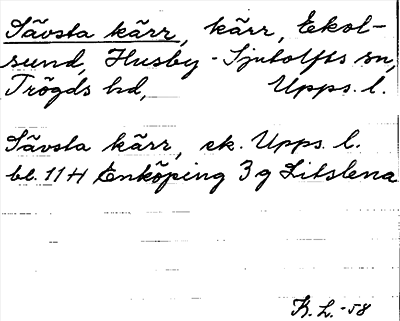 Sävsta kärr, kärr, Ekol-
sund, Husby-Sjutolfts sn,
Trögds hd, Upps. l.
Sävsta kärr, ek. Upps. l.
bl. 11H Enköping 3g Litslena
K. L. -58